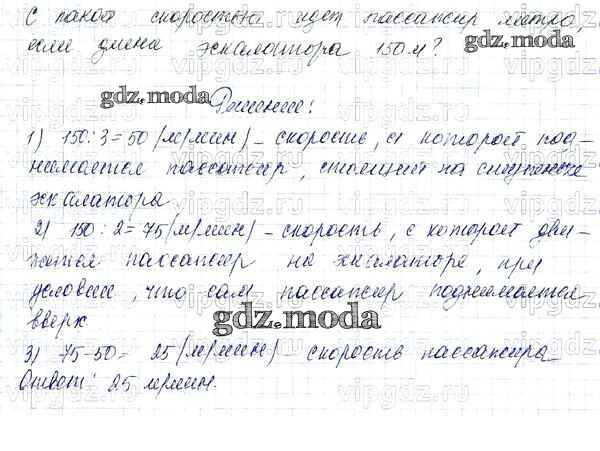 С какой скоростью идет пассажир метро,
если длина эскалатора 150 м?
gdz.moda
gdz.moda
Решение:
1) 150:3=50 (м/мин) – скорость, с которой под-
нимается пассажир, стоящий на ступеньке
эскалатора
2) 150:2=75 (м/мин) – скорость, с которой дви-
жется пассажир на эскалаторе, при
условии, что сам пассажир поднимается
вверх
gdz.moda
3) 75-50= 25 (м/мин) – скорость пассажира
Ответ: 25 м/мин.